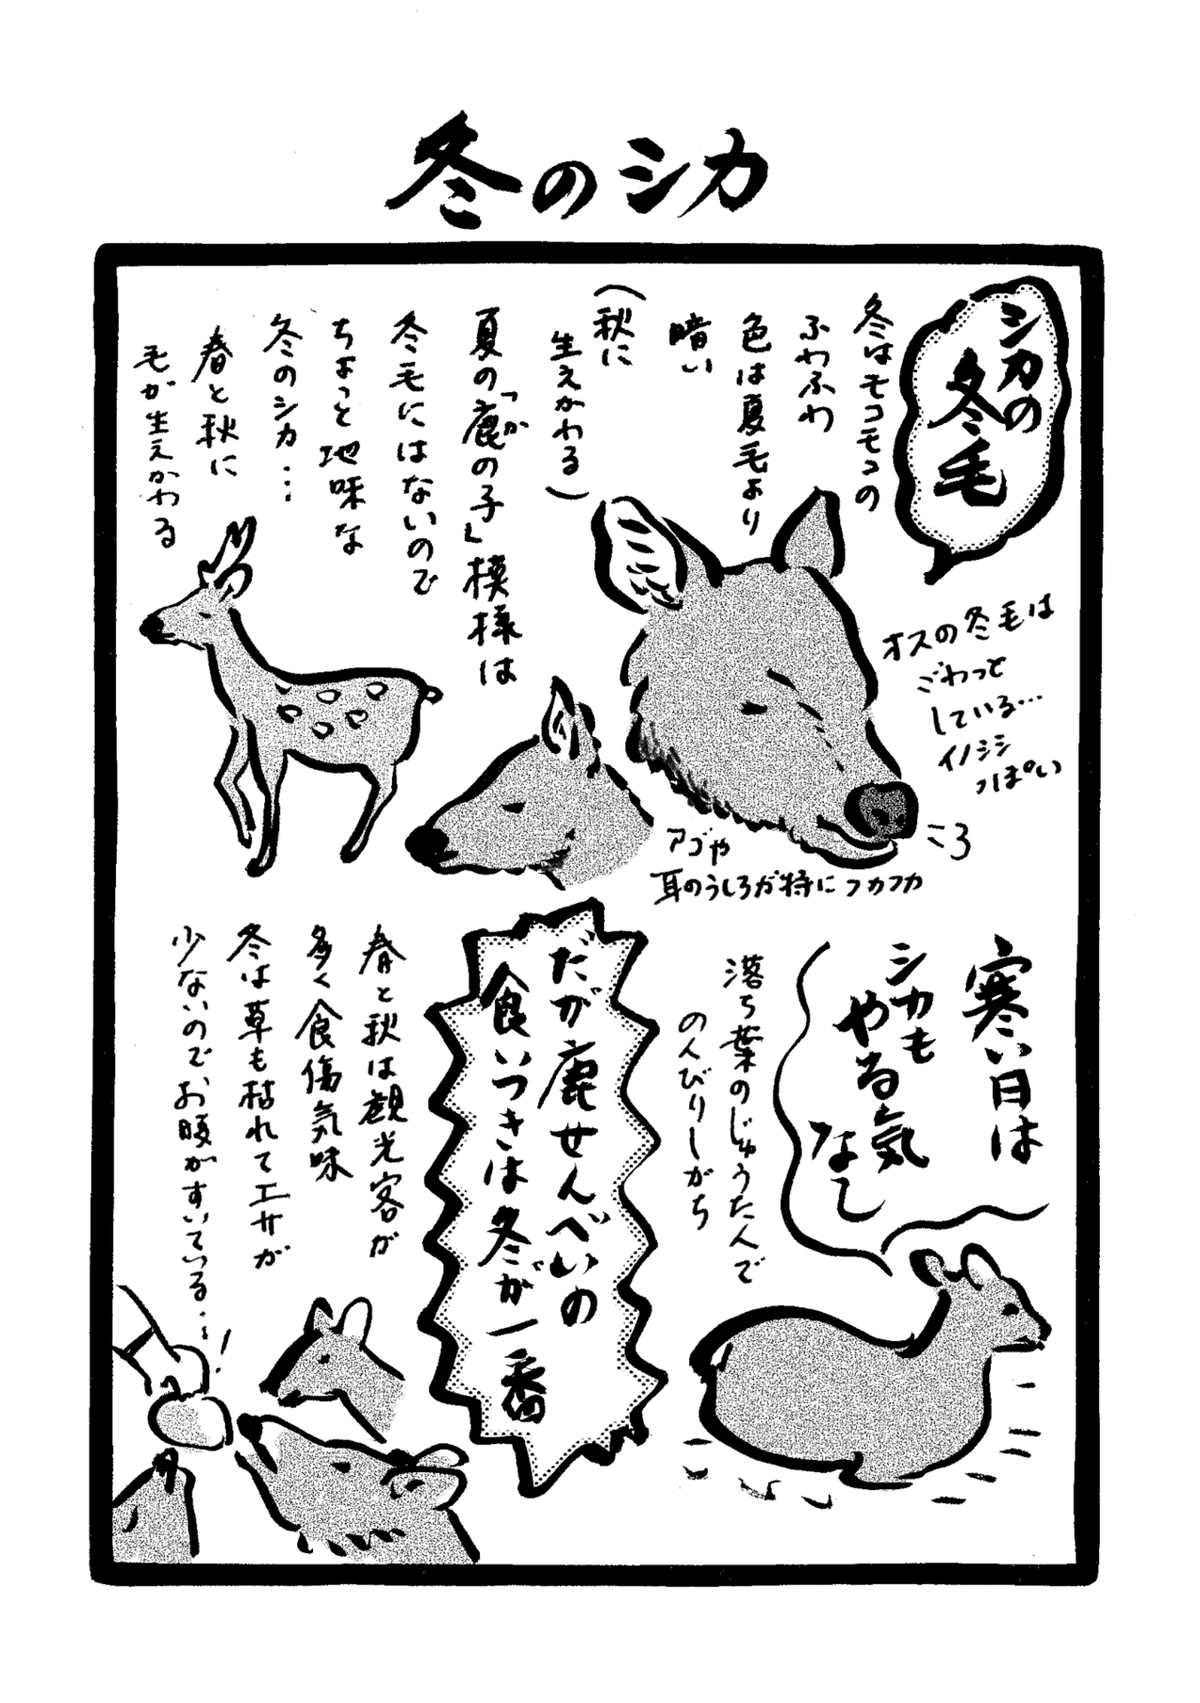 冬のシカ
シカの
冬毛
冬はモコモコの
ふわふわ
色は夏毛より
暗い
(秋に
生えかわる)
夏の「鹿の子」模様は
か
冬毛にはないので
ちょっと地味な
冬のシカ…
春と秋に
毛が生えかわる
オスの冬毛は
ごわっと
している…
イノシシ
っぽい
アゴや
耳のうしろが特にフカフカ
寒い日は
シカも
やる気
なし
落ち葉のじゅうたんで
のんびりしがち
だが鹿せんべいの
食いつきは冬が一番
春と秋は観光客が
多く食傷気味
冬は草も枯れてエサが
少ないのでお腹がすいている…!